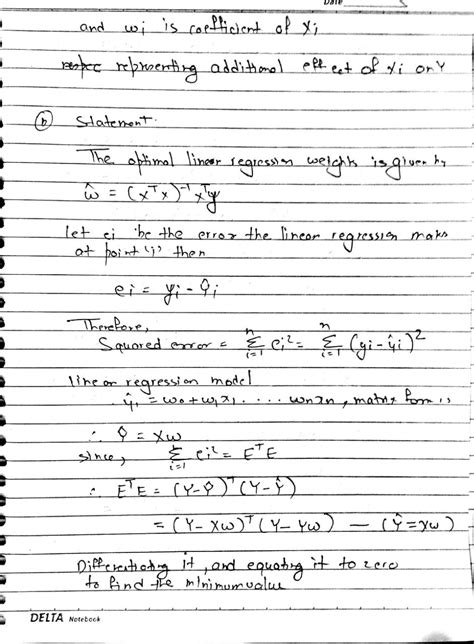 Date
and wi is coefficient of Xi
representing additional effect of Xi on Y
(b) Statement.
The optimal linear regression weights is given by
ŵ = (xᵀx)⁻¹xᵀy
let ei be the error the linear regression maks
at point 'i' then
ei = yi - ŷi
Therefore,
Squared error = n Σ i=1 ei² = n Σ i=1 (yi - ŷi)²
linear regression model
ŷi = w0 + w1x1 ..... wnxn, matrix form is
∴ Ŷ = Xw
since, Σ i=1 ei² = EᵀE
∴ EᵀE = (Y-Ŷ)ᵀ(Y-Ŷ)
= (Y-Xw)ᵀ(Y-Yw) — (Ŷ=xw)
Differentiating it, and equating it to zero
to find the minimum value
DELTA Notebook